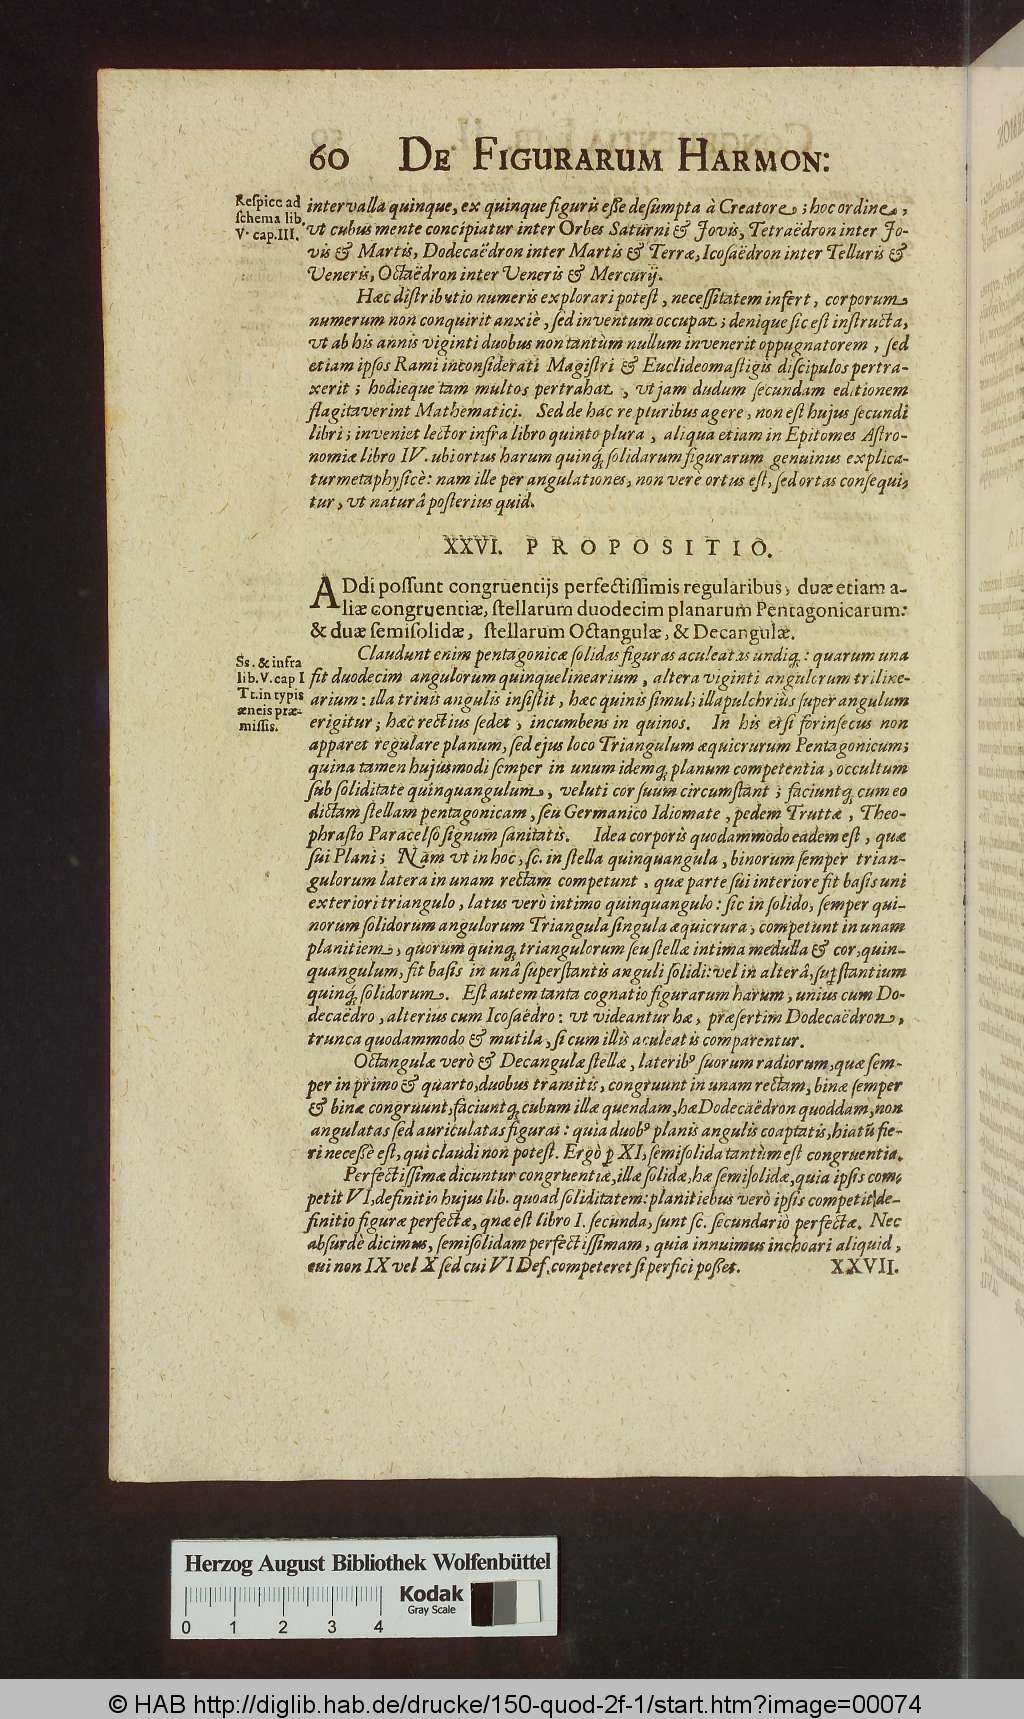 60 De Figurarum Harmon:
Respice ad
schema lib.
V. cap. III.
intervalla quinque, ex quinque figuris esse desumpta à Creatore; hoc ordine,
ut cubus mente concipiatur inter Orbes Saturni & Jovis, Tetraëdron inter Jo-
vis & Martis, Dodecaëdron inter Martis & Terræ, Icosaëdron inter Telluris &
Veneris, Octaëdron inter Veneris & Mercurij.
Hæc distributio numeris explorari potest, necessitatem infert, corporum
numerum non conquirit anxiè, sed inventum occupat; denique sic est instructa,
vt ab his annis viginti duobus non tantùm nullum invenerit oppugnatorem, sed
etiam ipsos Rami inconsiderati Magistri & Euclideomastigis discipulos pertra-
xerit; hodieque tam multos pertrahat, vt jam dudum secundam editionem
flagitaverint Mathematici. Sed de hac re pluribus agere, non est hujus secundi
libri; inveniet lector infra libro quinto plura, aliqua etiam in Epitomes Astro-
nomiæ libro IV. ubi ortus harum quinq; solidarum figurarum genuinus explica-
tur metaphysicè: nam ille per angulationes, non verè ortus est, sed ortas consequi-
tur, vt naturâ posterius quid.
XXVI. PROPOSITIO.
ADdi possunt congruentijs perfectissimis regularibus, duæ etiam a-
liæ congruentiæ, stellarum duodecim planarum Pentagonicarum:
& duæ semisolidæ, stellarum Octangulæ, & Decangulæ.
Ss. & infra
lib. V. cap I
Tt. in typis
æneis præ-
missis.
Claudunt enim pentagonicæ solidas figuras aculeatas undiq;: quarum una
fit duodecim angulorum quinquelinearium, altera viginti angulorum triline-
arium: illa trinis angulis insistit, hæc quinis simul; illa pulchriùs super angulum
erigitur; hæc rectius sedet, incumbens in quinos. In his etsi forinsecus non
apparet regulare planum, sed ejus loco Triangulum æquicrurum Pentagonicum;
quina tamen hujusmodi semper in unum idemq; planum competentia, occultum
sub soliditate quinquangulum, veluti cor suum circumstant; faciuntq; cum eo
dictam stellam pentagonicam, seu Germanico Idiomate, pedem Truttæ, Theo-
phrasto Paracelso signum sanitatis. Idea corporis quodammodo eadem est, quæ
sui Plani; Nam vt in hoc, sc. in stella quinquangula, binorum semper trian-
gulorum latera in unam rectam competunt, quæ parte sui interiore fit basis uni
exteriori triangulo, latus verò intimo quinquangulo: sic in solido, semper qui-
norum solidorum angulorum Triangula singula æquicrura, competunt in unam
planitiem, quorum quinq; triangulorum seu stellæ intima medulla & cor, quin-
quangulum, fit basis in unâ superstantis anguli solidi: vel in alterâ, suꝑstantium
quinq; solidorum. Est autem tanta cognatio figurarum harum, unius cum Do-
decaëdro, alterius cum Icosaëdro: ut videantur hæ, præsertim Dodecaëdron,
trunca quodammodo & mutila, si cum illis aculeatis comparentur.
Octangulæ verò & Decangulæ stellæ, laterib⁹ suorum radiorum, quæ sem-
per in primo & quarto, duobus transitis, congruunt in unam rectam, binæ semper
& binæ congruunt, faciuntq; cubum illæ quendam, hæ Dodecaëdron quoddam, non
angulatas sed auriculatas figuras: quia duob⁹ planis angulis coaptatis, hiatũ fie-
ri necesse est, qui claudi non potest. Ergò ꝑ XI, semisolida tantùm est congruentia.
Perfectissimæ dicuntur congruentiæ, illæ solidæ, hæ semisolidæ, quia ipsis com-
petit VI, definitio hujus lib. quoad soliditatem: planitiebus verò ipsis competit de-
finitio figuræ perfectæ, quæ est libro I. secunda, sunt sc. secundariò perfectæ. Nec
absurdè dicimus, semisolidam perfectissimam, quia innuimus inchoari aliquid,
cui non IX vel X sed cui VI Def. competeret si perfici posset.
XXVII.
Herzog August Bibliothek Wolfenbüttel
Kodak
Gray Scale
0 1 2 3 4
© HAB http://diglib.hab.de/drucke/150-quod-2f-1/start.htm?image=00074